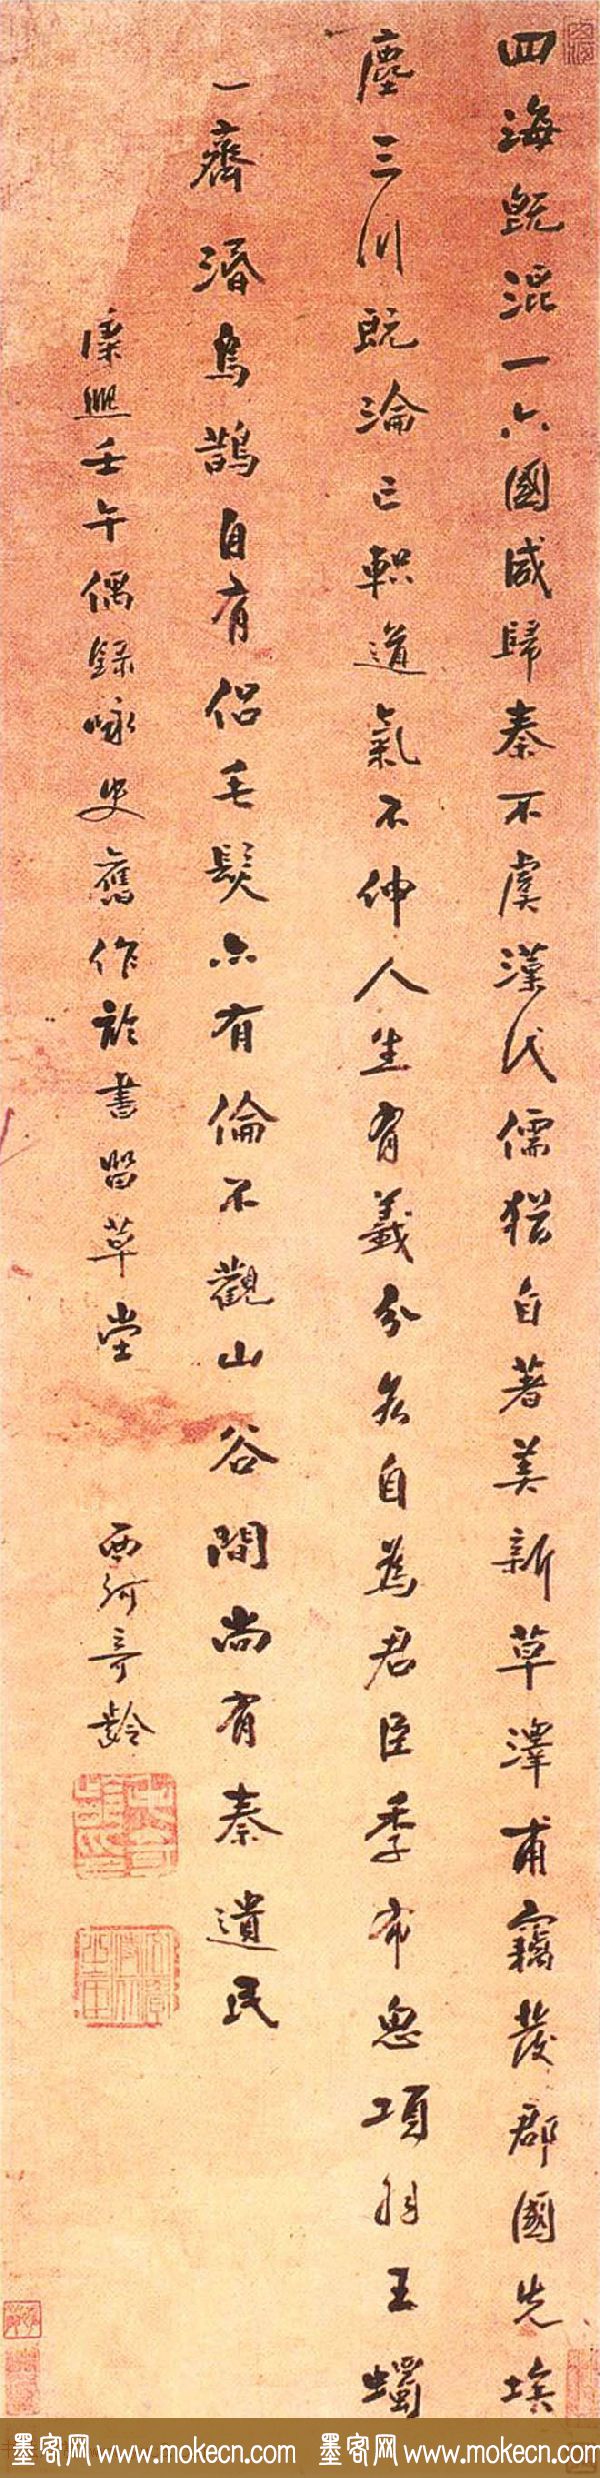 四海既混一六國咸歸秦不虞漢代儒猶自著美新草澤甫竊發郡國先埃
塵三川既淪亡軹道氣不伸人生有義分各自為君臣季布忽項羽王蠋
一齊湣烏鵲自有侶毛髮亦有倫不觀山谷間尚有秦遺民
康熙壬午偶錄咏史舊作於書留草堂
西河奇齡
墨客网 www.mokecn.com 墨客网 www.mokecn.com